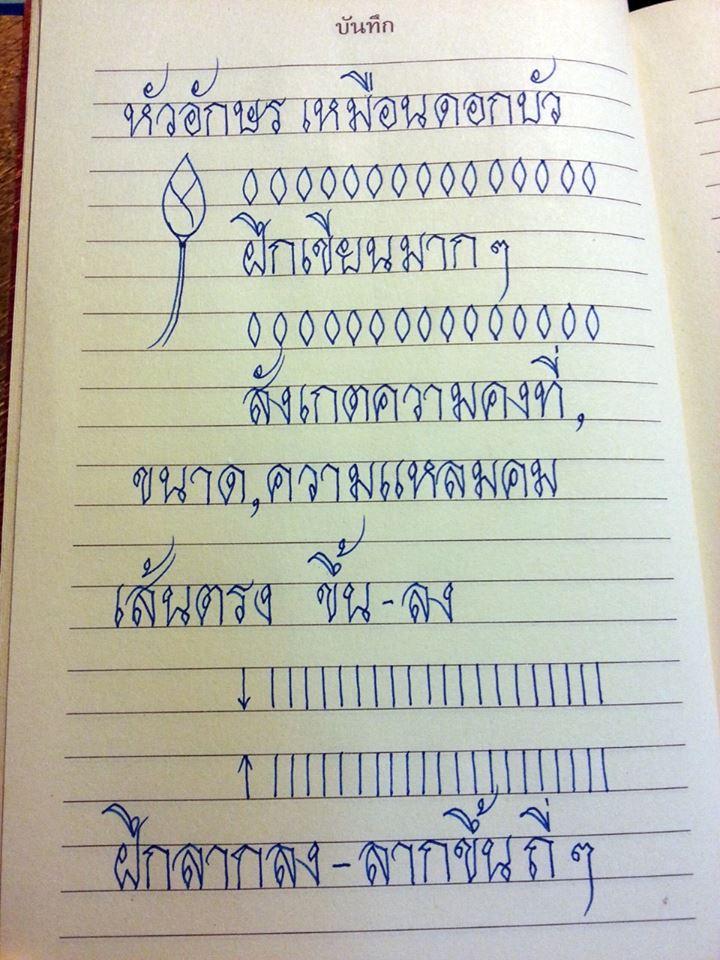 บันทึก
หัวอักษร เหมือนดอกบัว
ฝึกเขียนมาก ๆ
สังเกตความคงที่,
ขนาด,ความแหลมคม
เส้นตรง ขึ้น-ลง
ฝึกลากลง-ลากขึ้น ถี่ ๆ